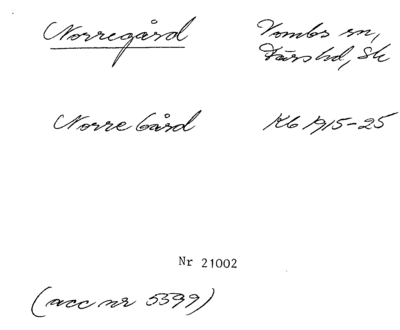 Norregård Vombs sn,
Färs hd, Sk
Norre Gård Kb 1915-25
Nr 21002
(acc nr 5399)